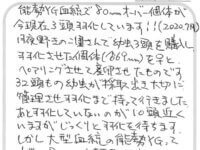 能勢YG血統で80mmオーバー個体が
今現在、3頭羽化しています!!!(2020.7月)
月夜野きのこ園さんで幼虫3頭を購入し
羽化させた個体(♂69mm)を♀と
ペアリングさせて産ませたものです。
32頭もの幼虫が採取出来大切に
管理させ羽化まで持って行きました
あと羽化していないのが10頭近く
いますがじっくりと羽化を待ちます。
しかし大型血統の能勢YGって